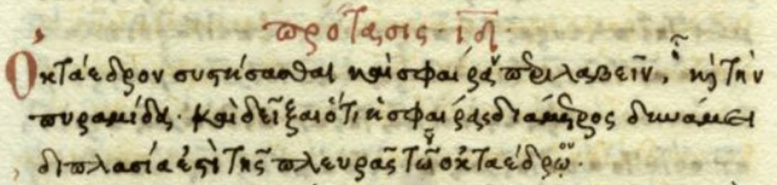 πρότασις ιδ̅.
Ὀκταεδρον συστήσασθαι καὶ σφαίρᾳ περιλαβεῖν, ᾗ κ(αὶ) τὴν
πυραμίδα· καὶ δεῖξαι ὅτι ἡ σφαίρας διάμετρος δυνάμει
διπλασία ἐστὶ τῆς πλευρᾶς τοῦ ὀκταέδρου.